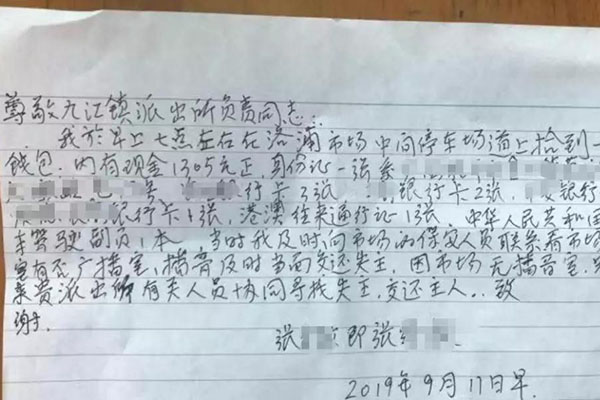 尊敬九江镇派出所负责同志：
我於早上七点左右在洛浦市场中间停车场道上拾到一
钱包：内有现金1305元正，身份证一张系
行卡3张 银行卡2张， 银行
银行卡1张，港澳往来通行证1张，中华人民共和国
车驾驶副页1本 当时我及时向市场的保安人员联系看市场
室有否广播室，播音及时当面交还失主，因市场无播音室，
亲贵派出所有关人员协同寻找失主，交还主人。致
谢.
张 即张
2019年9月11日早.